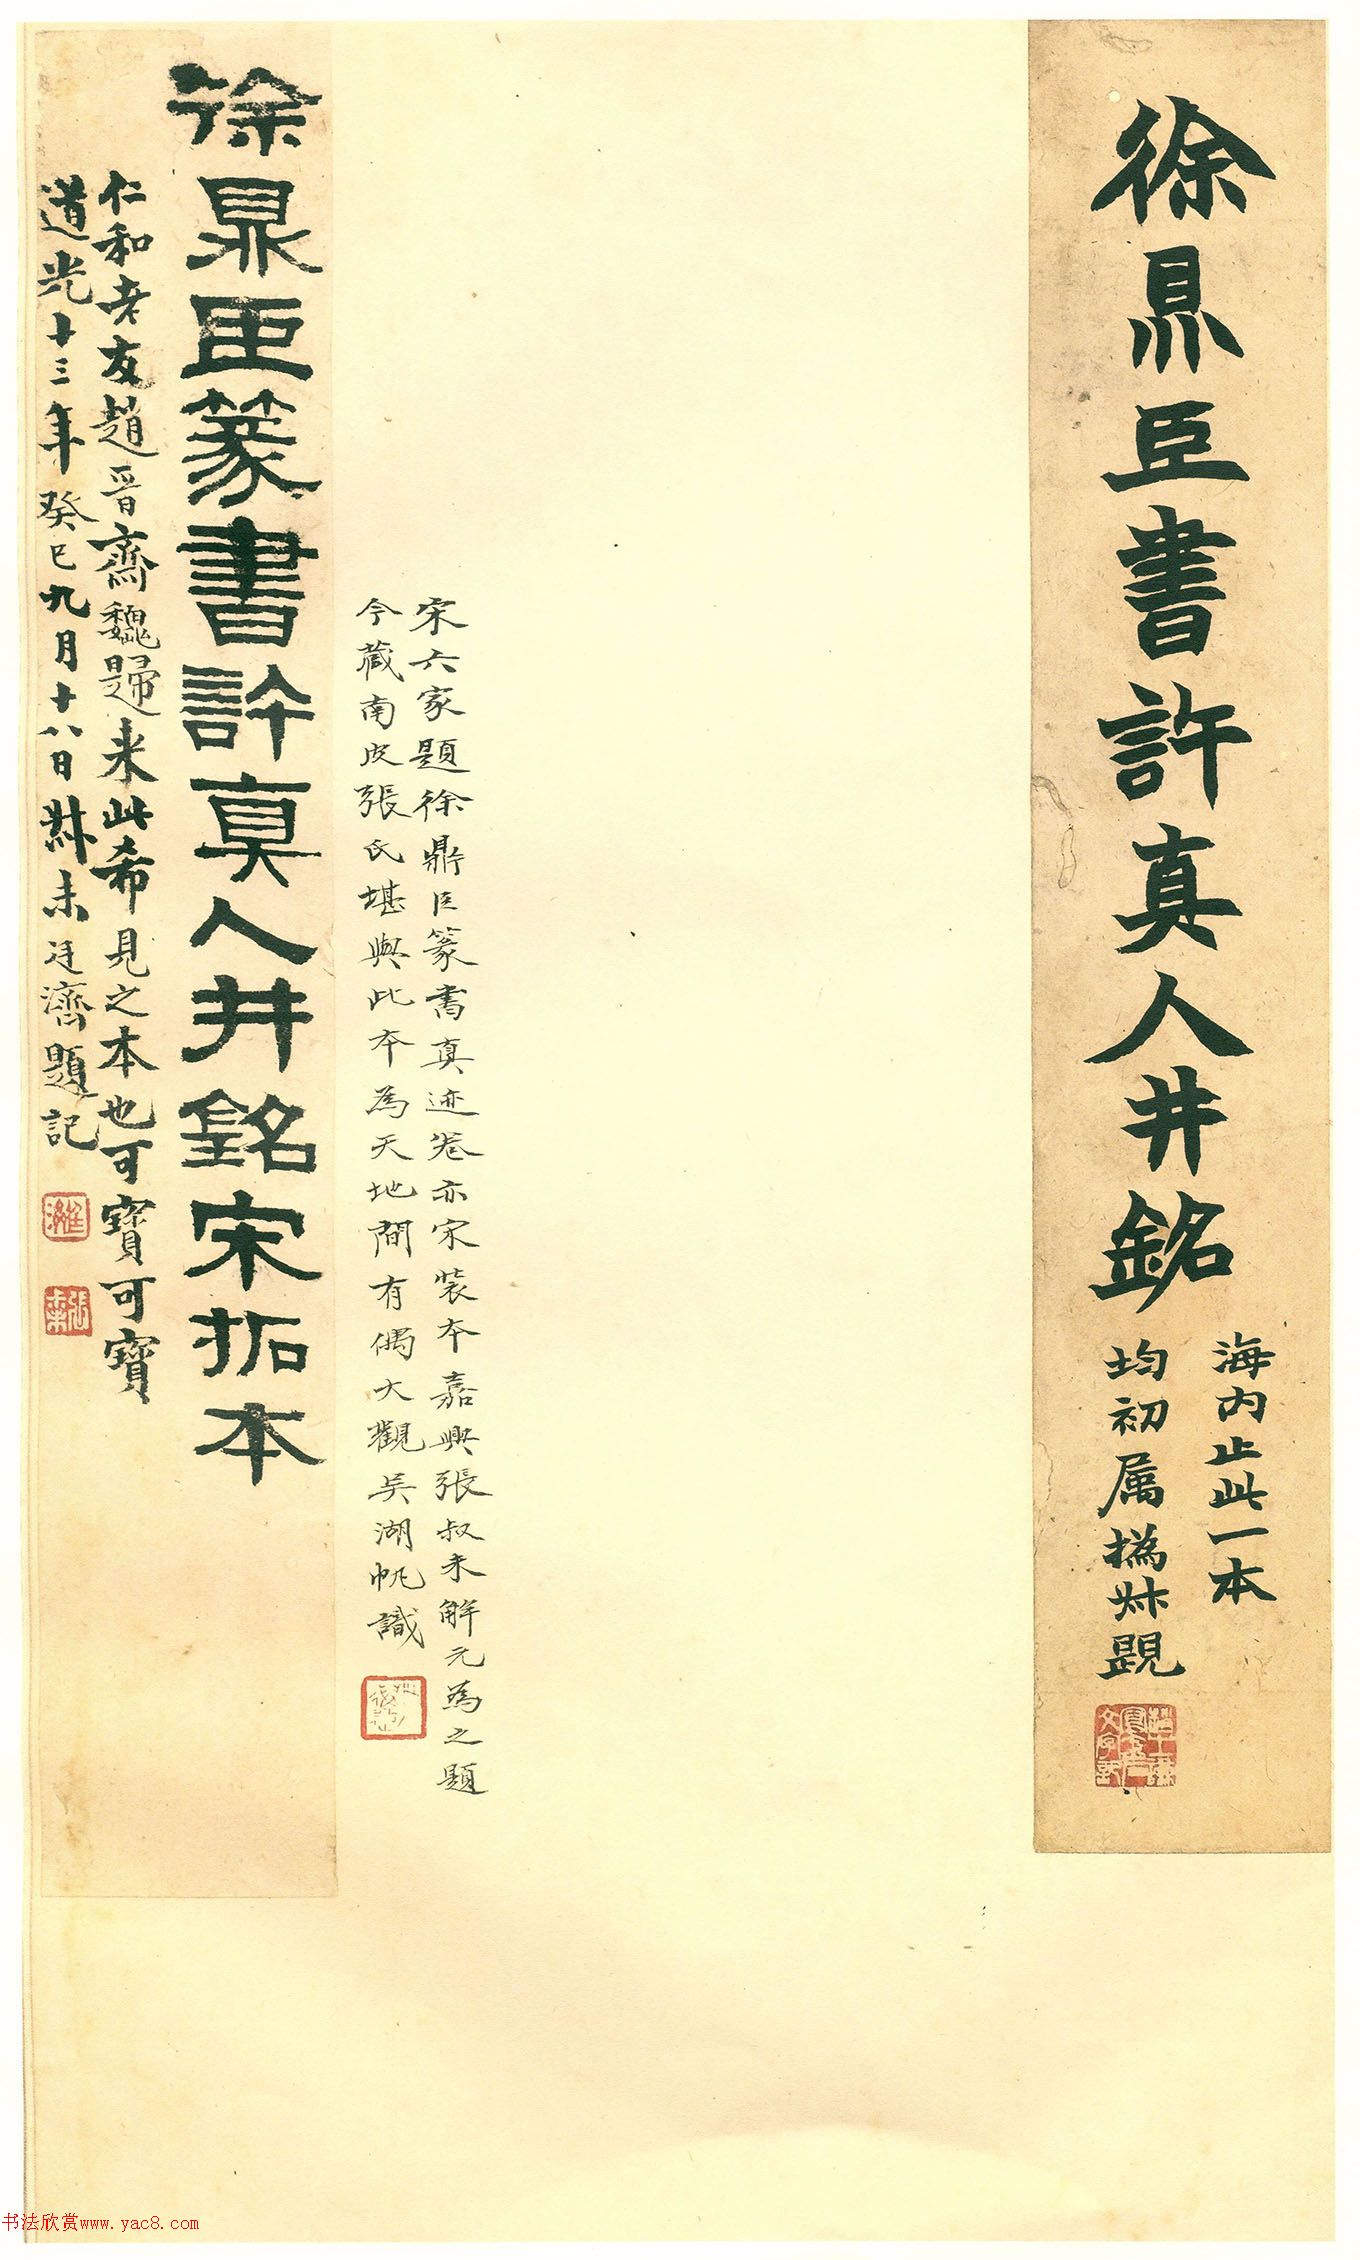 徐鼎臣書許真人井銘
海内止此一本
均初属撝叔題
趙之謙
宋六家題徐鼎臣篆書真迹卷亦宋裝本嘉興張叔未解元為之題
今藏南皮張氏堪與此本為天地間有偶大觀吳湖帆識
徐鼎臣篆書許真人井銘宋拓本
仁和老友趙晉齋魏歸来此希見之本也可寶可寶
道光十三年癸巳九月十八日叔未廷濟題記
书法欣赏www.yac8.com